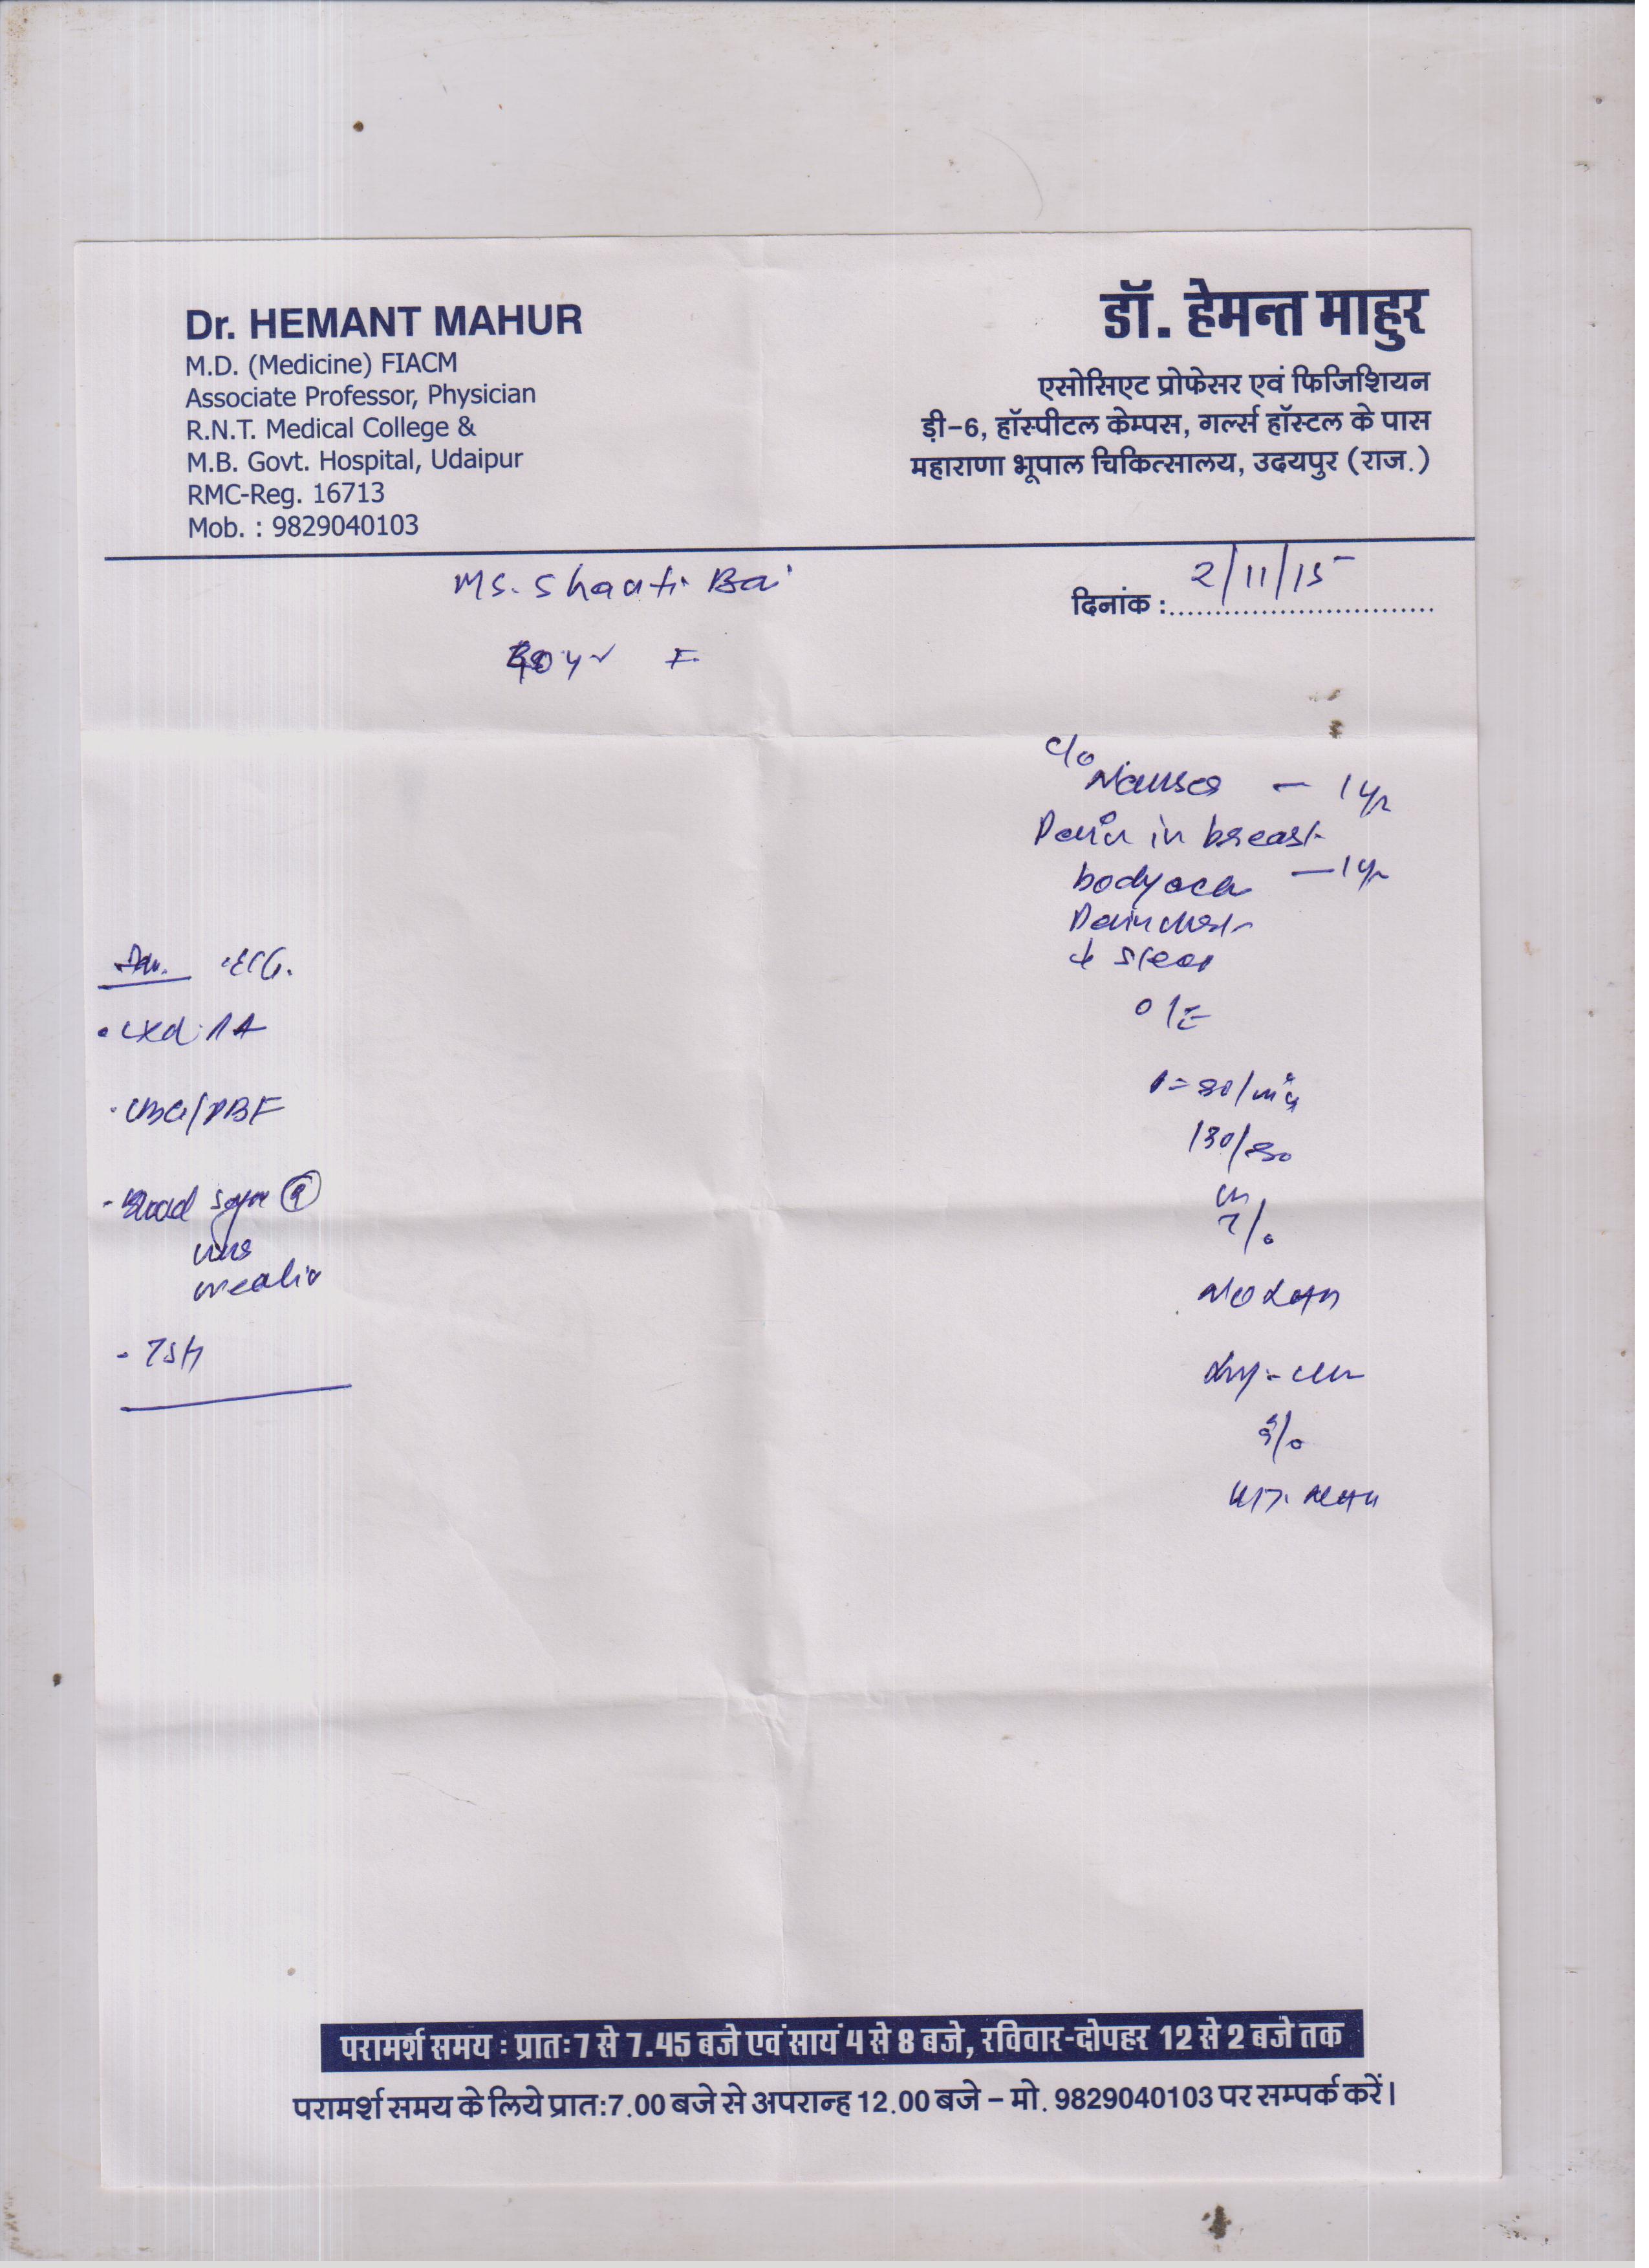 Dr. HEMANT MAHUR
M.D. (Medicine) FIACM
Associate Professor, Physician
R.N.T. Medical College &
M.B. Govt. Hospital, Udaipur
RMC-Reg. 16713
Mob. : 9829040103
डॉ. हेमन्त माहुर
एसोसिएट प्रोफेसर एवं फिजिशियन
ड़ी-6, हॉस्पीटल केम्पस, गर्ल्स हॉस्टल के पास
महाराणा भूपाल चिकित्सालय, उदयपुर (राज.)
Ms. Shanti Bai
दिनांक : 2/11/15
yr F.
c/o
Nausea - 1 yr
Pain in breast
bodyache - 1 yr
Pain chest
↓ sleep
O/E
P = 80/min
130/80
No
ECG.
CBC/PBF
- Blood sugar
- TSH
परामर्श समय : प्रातः 7 से 7.45 बजे एवं सायं 4 से 8 बजे, रविवार-दोपहर 12 से 2 बजे तक
परामर्श समय के लिये प्रातः 7.00 बजे से अपरान्ह 12.00 बजे – मो. 9829040103 पर सम्पर्क करें।